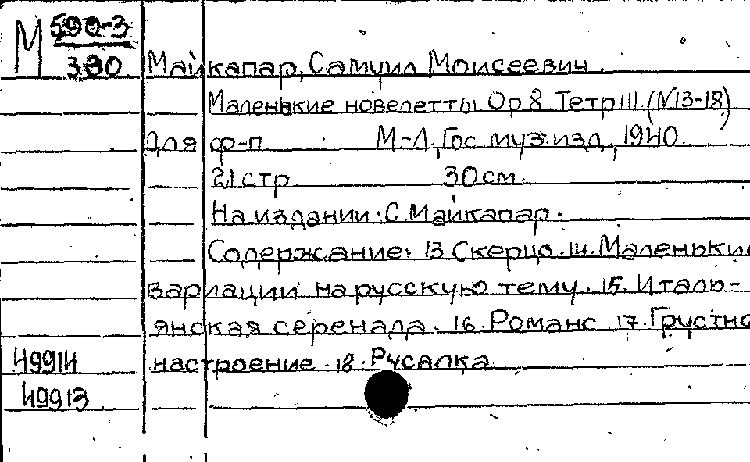 М 590-3
380
Майкапар, Самуил Моисеевич.
Маленькие новелетты Ор 8 Тетр III (N13-18)
для ф-п М-Л, Гос муз. изд, 1940.
21 стр. 30 см.
На издании: С. Майкапар.
Содержание: 13 Скерцо. 14. Маленькие
вариации на русскую тему. 15. Италь-
янская серенада. 16. Романс 17. Грустно
настроение. 18. Русалка
49914
49913